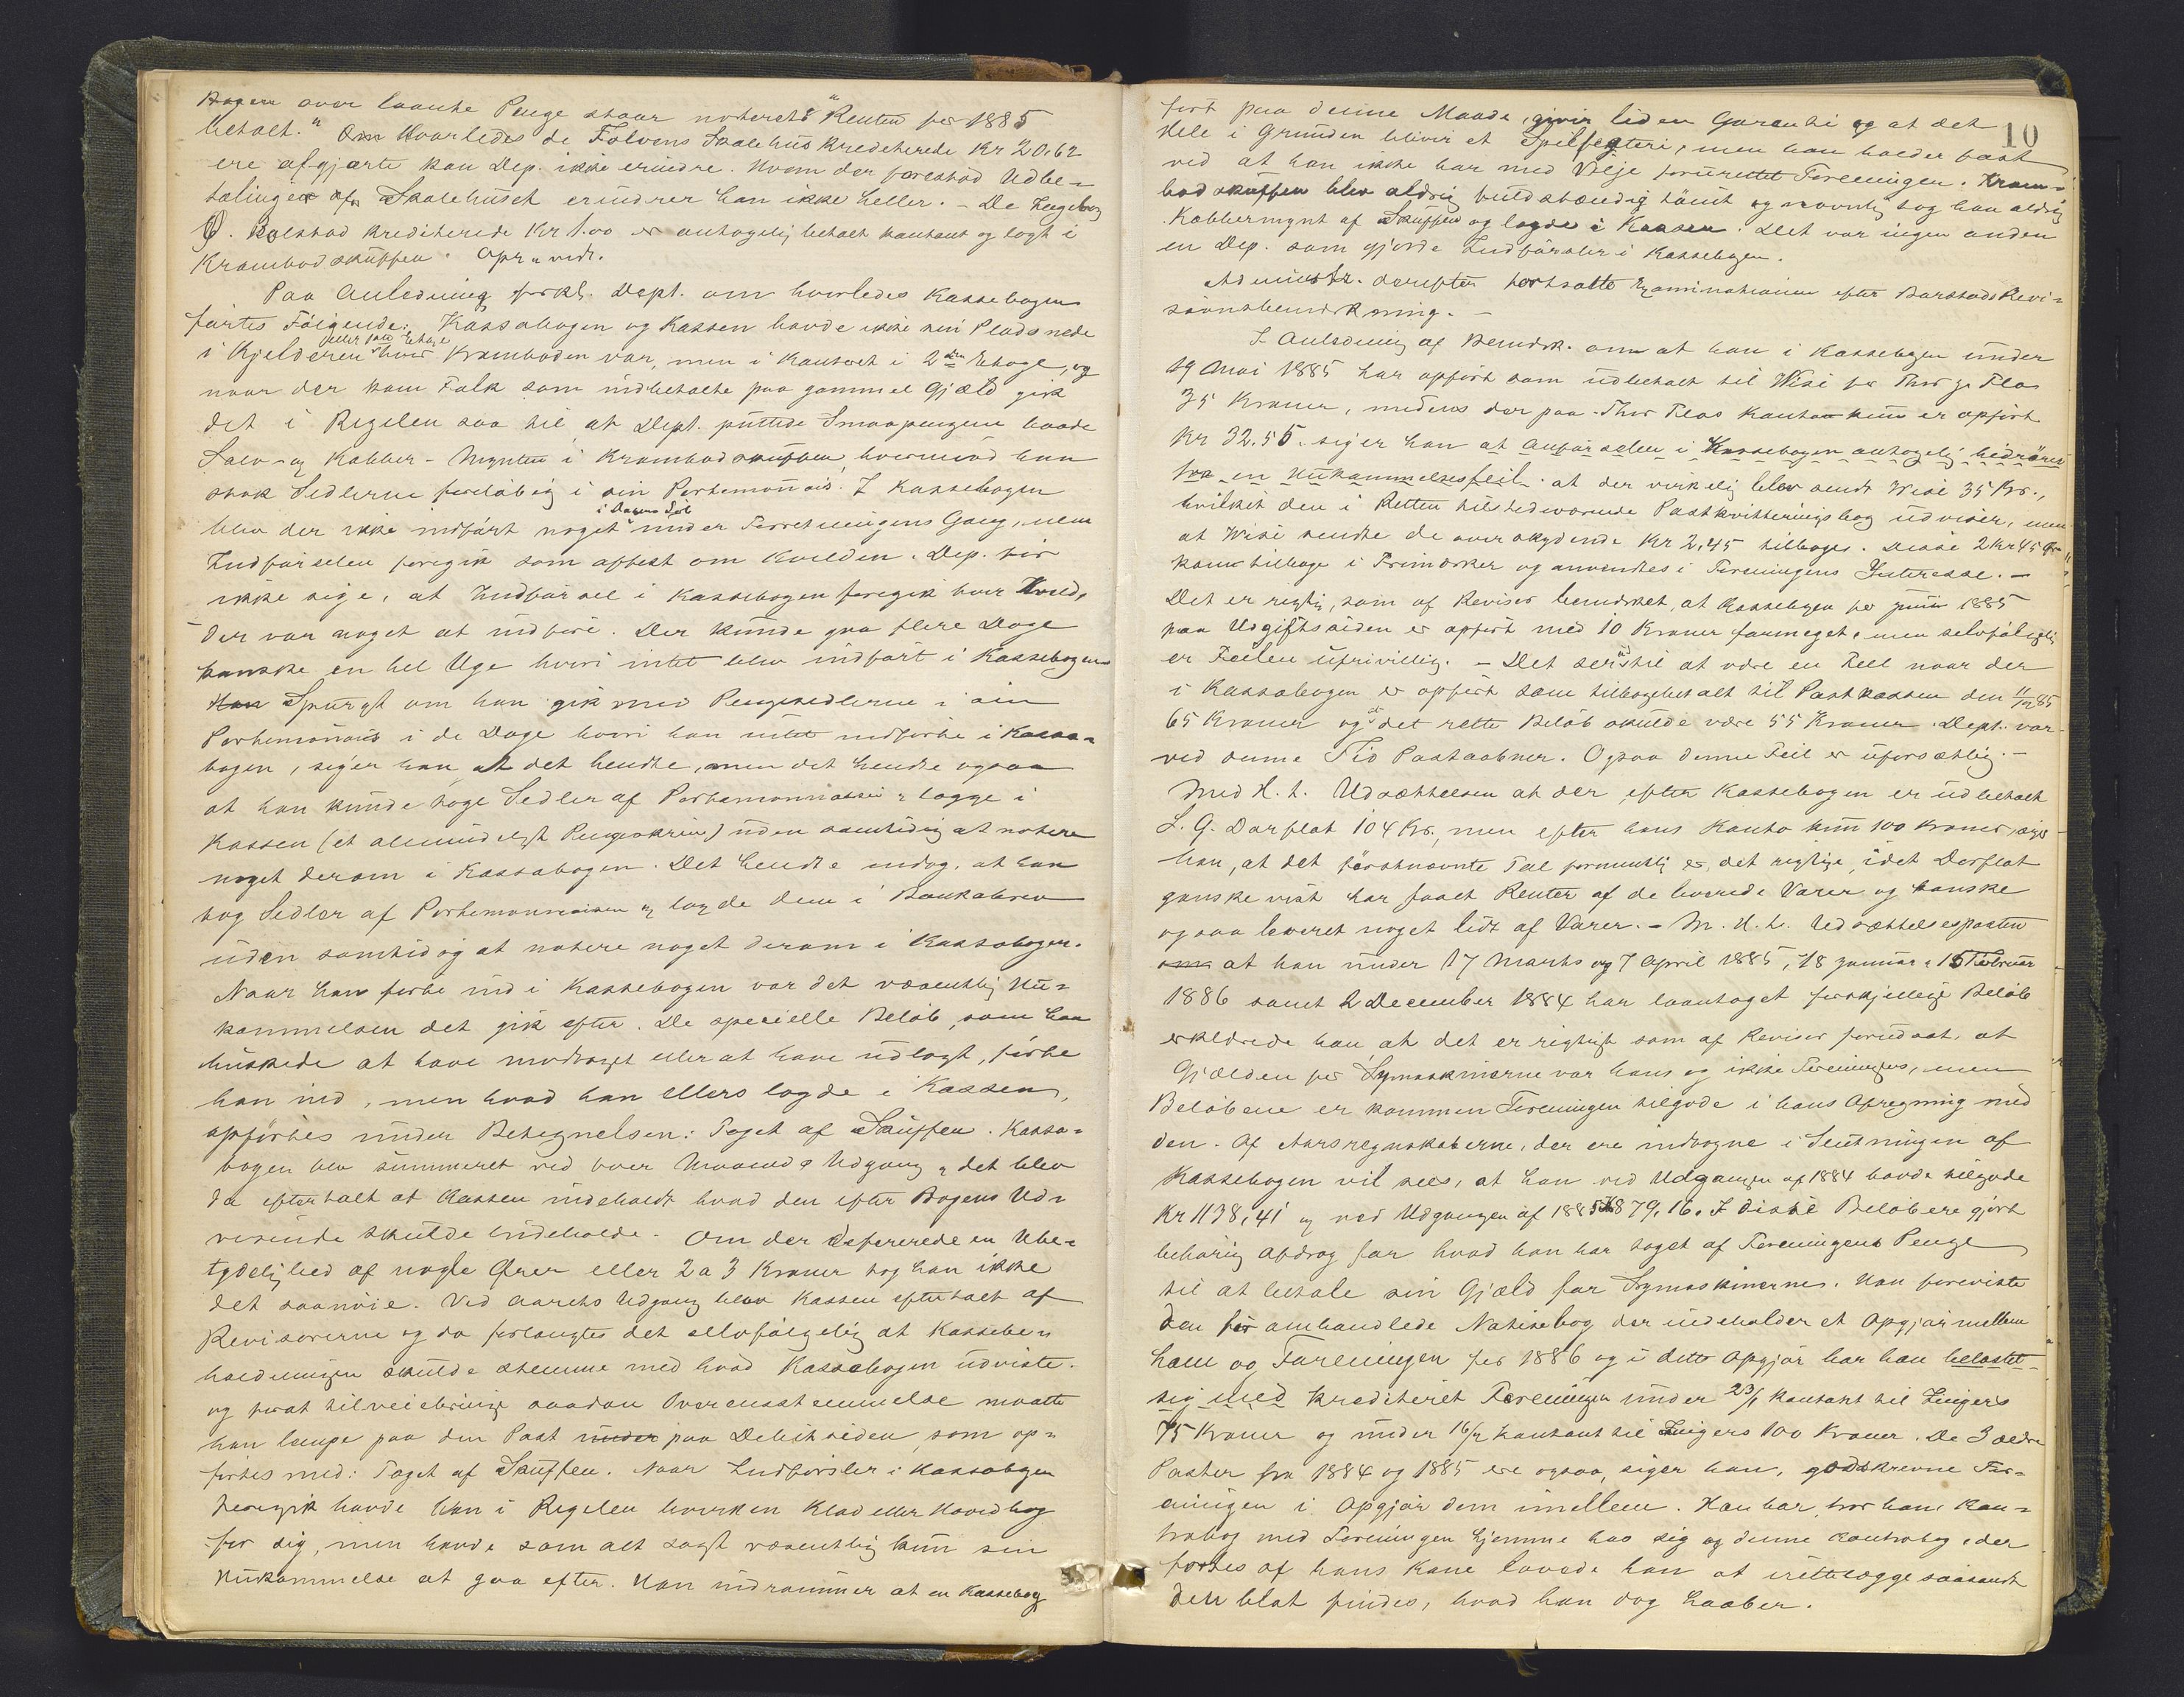 Bogen over laante Penge staar noteret: "Renten for 1885
betalt." Om Hvorledes de Folvens Skolehus krediterede Kr 20,62
ere afgjorte kan Dep. ikke erindre. Hvem der forestod Udbe-
talingen af Skolehuset erindrer han ikke heller. - De
krediterede Kr 1.00 er antagelig betalt kontant og lagt i
Krambodskuffen. Opr. vedt.
Paa Anledning forkl. Dept. om hvorledes Kassebogen
førtes Følgende: Kassabogen og Kassen havde ikke sin Plads nede
i Kjelderen eller 1ste Etage hvor Kramboden var, men i Kontoret i 2den Etage, og
naar der kom Folk som indbetalte paa gammel Gjæld gik
det i Regelen saa til at Dept. puttede Smaapengene baade
Sølv- og Kobber-Mynten i Krambodskuffen, hvorimod han
stak Sedlerne foreløbig i sin Portemonnais. I Kassebogen
blev der ikke indført noget i Dagens Løb under Forretningens Gang, men
Indførselen foregik som oftest om Kvelden. Dep. tør
ikke sige, at Indførsel i Kassebogen foregik hver Kveld,
der var noget at indføre. Der kunde gaa flere Dage
kanske en hel Uge hvori intet blev indført i Kassebogen
Spurgt om han gik med Pengesedlerne i sin
Portemonnais i de Dage hvori han intet indførte i Kassa-
bogen, siger han at det hendte, men det hendte ogsaa
at han kunde tage Sedler af Portemonnaien & lægge i
Kassen (et almindeligt Pengeskrin) uden samtidig at notere
noget derom i Kassabogen. Det hendte endog, at han
tog Sedler af Portemonnaien og lagde dem i Bankobrev
uden samtidig at notere noget derom i Kassabogen.
Naar han førte ind i Kassebogen var det væsentlig Hu-
kommelsen det gik efter. De specielle Beløb, som han
huskede at have modtaget eller at have udlagt, førte
han ind, men hvad han ellers lagde i Kassen,
opførtes under Betegnelsen: Taget af Skuffen. Kassa-
bogen blev summeret ved hver Maaneds Udgang & det blev
da eftertalt at Kassen indeholdt hvad den efter Bogens Ud-
visende skulde indeholde. Om der deffererede en Ube-
tydelighed af nogle Ører eller 2 a 3 Kroner tog han ikke
det saa nøie. Ved Aarets Udgang blev Kassen eftertalt af
Revisorerne og da forlangtes det selvfølgelig at Kassebe-
holdningen skulde stemme med hvad Kassabogen udviste.
og for at tilveiebringe saadan Overensstemmelse maatte
han længe paa den Post under paa Debitsiden som op-
førtes med: Taget af Skuffen. Naar Indførsler i Kassabogen
foregik havde han i Regelen hverken Klad eller Hovedbog
for sig, men havde som alt sagt væsentlig kun sin
Hukommelse at gaa efter. Han indrømmer at en Kassebog
10
ført paa denne Maade, giver liden Garanti og at det
Hele i Grunden bliver et Spilfegteri, men han holder fast
ved at han ikke har med Vilje forurettet Foreningen. Kram-
bodskuffen blev aldrig fuldstændig tømt og navnlig tog han aldrig
Kobbermynt af Skuffen og lagde i Kassen. Det var ingen anden
en Dep. som gjorde Indførsler i Kassebogen.
Administr. derefter fortsatte Examinationen efter Barstads Revi-
sionsbemærkning. -
I Anledning af Bemærk. om at han i Kassebogen under
19 Mai 1885 har opført som udbetalt til Wisé for Thor Flos
35 Kroner, medens der paa Thor Flos Konto kun er opført
Kr 32.55. siger han at Anførselen i Kassebogen antagelig hidrører
fra en Hukommelsesfeil. at der virkelig blev sendt Wisé 35 Kr.,
hvilket den i Retten tilstedværende Postkvitteringsbog udviser, men
at Wisé sendte de overskydende Kr 2,45 tilbage. Disse 2 Kr 45 Øre
kom tilbage i Frimærker og anvendtes i Foreningens Interesse. -
Det er rigtig, som af Revisor bemærket, at Kassebogen for Juni 1885
paa Udgiftssiden er opført med 10 Kroner formeget, men selvfølgelig
er Feilen ufrivillig. - Det ser ud til at være en Feil naar der
i Kassabogen er opført som tilbagebetalt til Postkassen den 11/12 85
65 Kroner og at det rette Beløb skulde være 55 Kroner. Dept. var
ved denne Tid Postaabner. Ogsaa denne Feil er uforsætlig. -
Med H. t. Udsættelsen at der efter Kassebogen er udbetalt
L. G. Dorflat 104 Kr., men efter hans Konto kun 100 Kroner, siger
han, at det førstnævnte Tal formentlig er det rigtige, idet Dorflat
ganske vist har faaet Renter af de leverede Varer og kanske
ogsaa leveret noget lidt af Varer. - M. H. t. Udsættelsesposten
om at han under 17 Marts og 7 April 1885, 18 Januar & 15 Februar
1886 samt 2 December 1884 har laantaget forskjellige Beløb
erklærede han at det er rigtigt som af Revisor forudsat, at
Gjælden for Symaskinerne var hans og ikke Foreningens, men
Beløbene er kommen Foreningen tilgode i hans Afregning med
den. Af Aarsregnskaberne, der ere indtagne i Slutningen af
Kassebogen vil sees, at han ved Udgangen af 1884 havde tilgode
Kr 1138,41 og ved Udgangen af 1885 Kr 879,16. I disse Beløb ere gjort
behørig Afdrag for hvad han har taget af Foreningens Penge
til at betale sin Gjæld for Symaskinerne. Han foreviste
den før omhandlede Notisebog der indeholder et Opgjør mellem
ham og Foreningen for 1886 og i dette Opgjør har han belastet
sig med krediteret Foreningen under 23/1 Kontant til Singers
75 Kroner og under 16/2 Kontant til Singers 100 Kroner. De 3 ældre
Poster fra 1884 og 1885 ere ogsaa, siger han, godskrevne For-
eningen i Opgjør dem imellem. Han har, tror han, Kon-
trabog med Foreningen hjemme hos sig og denne Kontrabog, der
førtes af hans Kone lovede han at irettelægge saasandt
den blot findes, hvad han dog haaber.